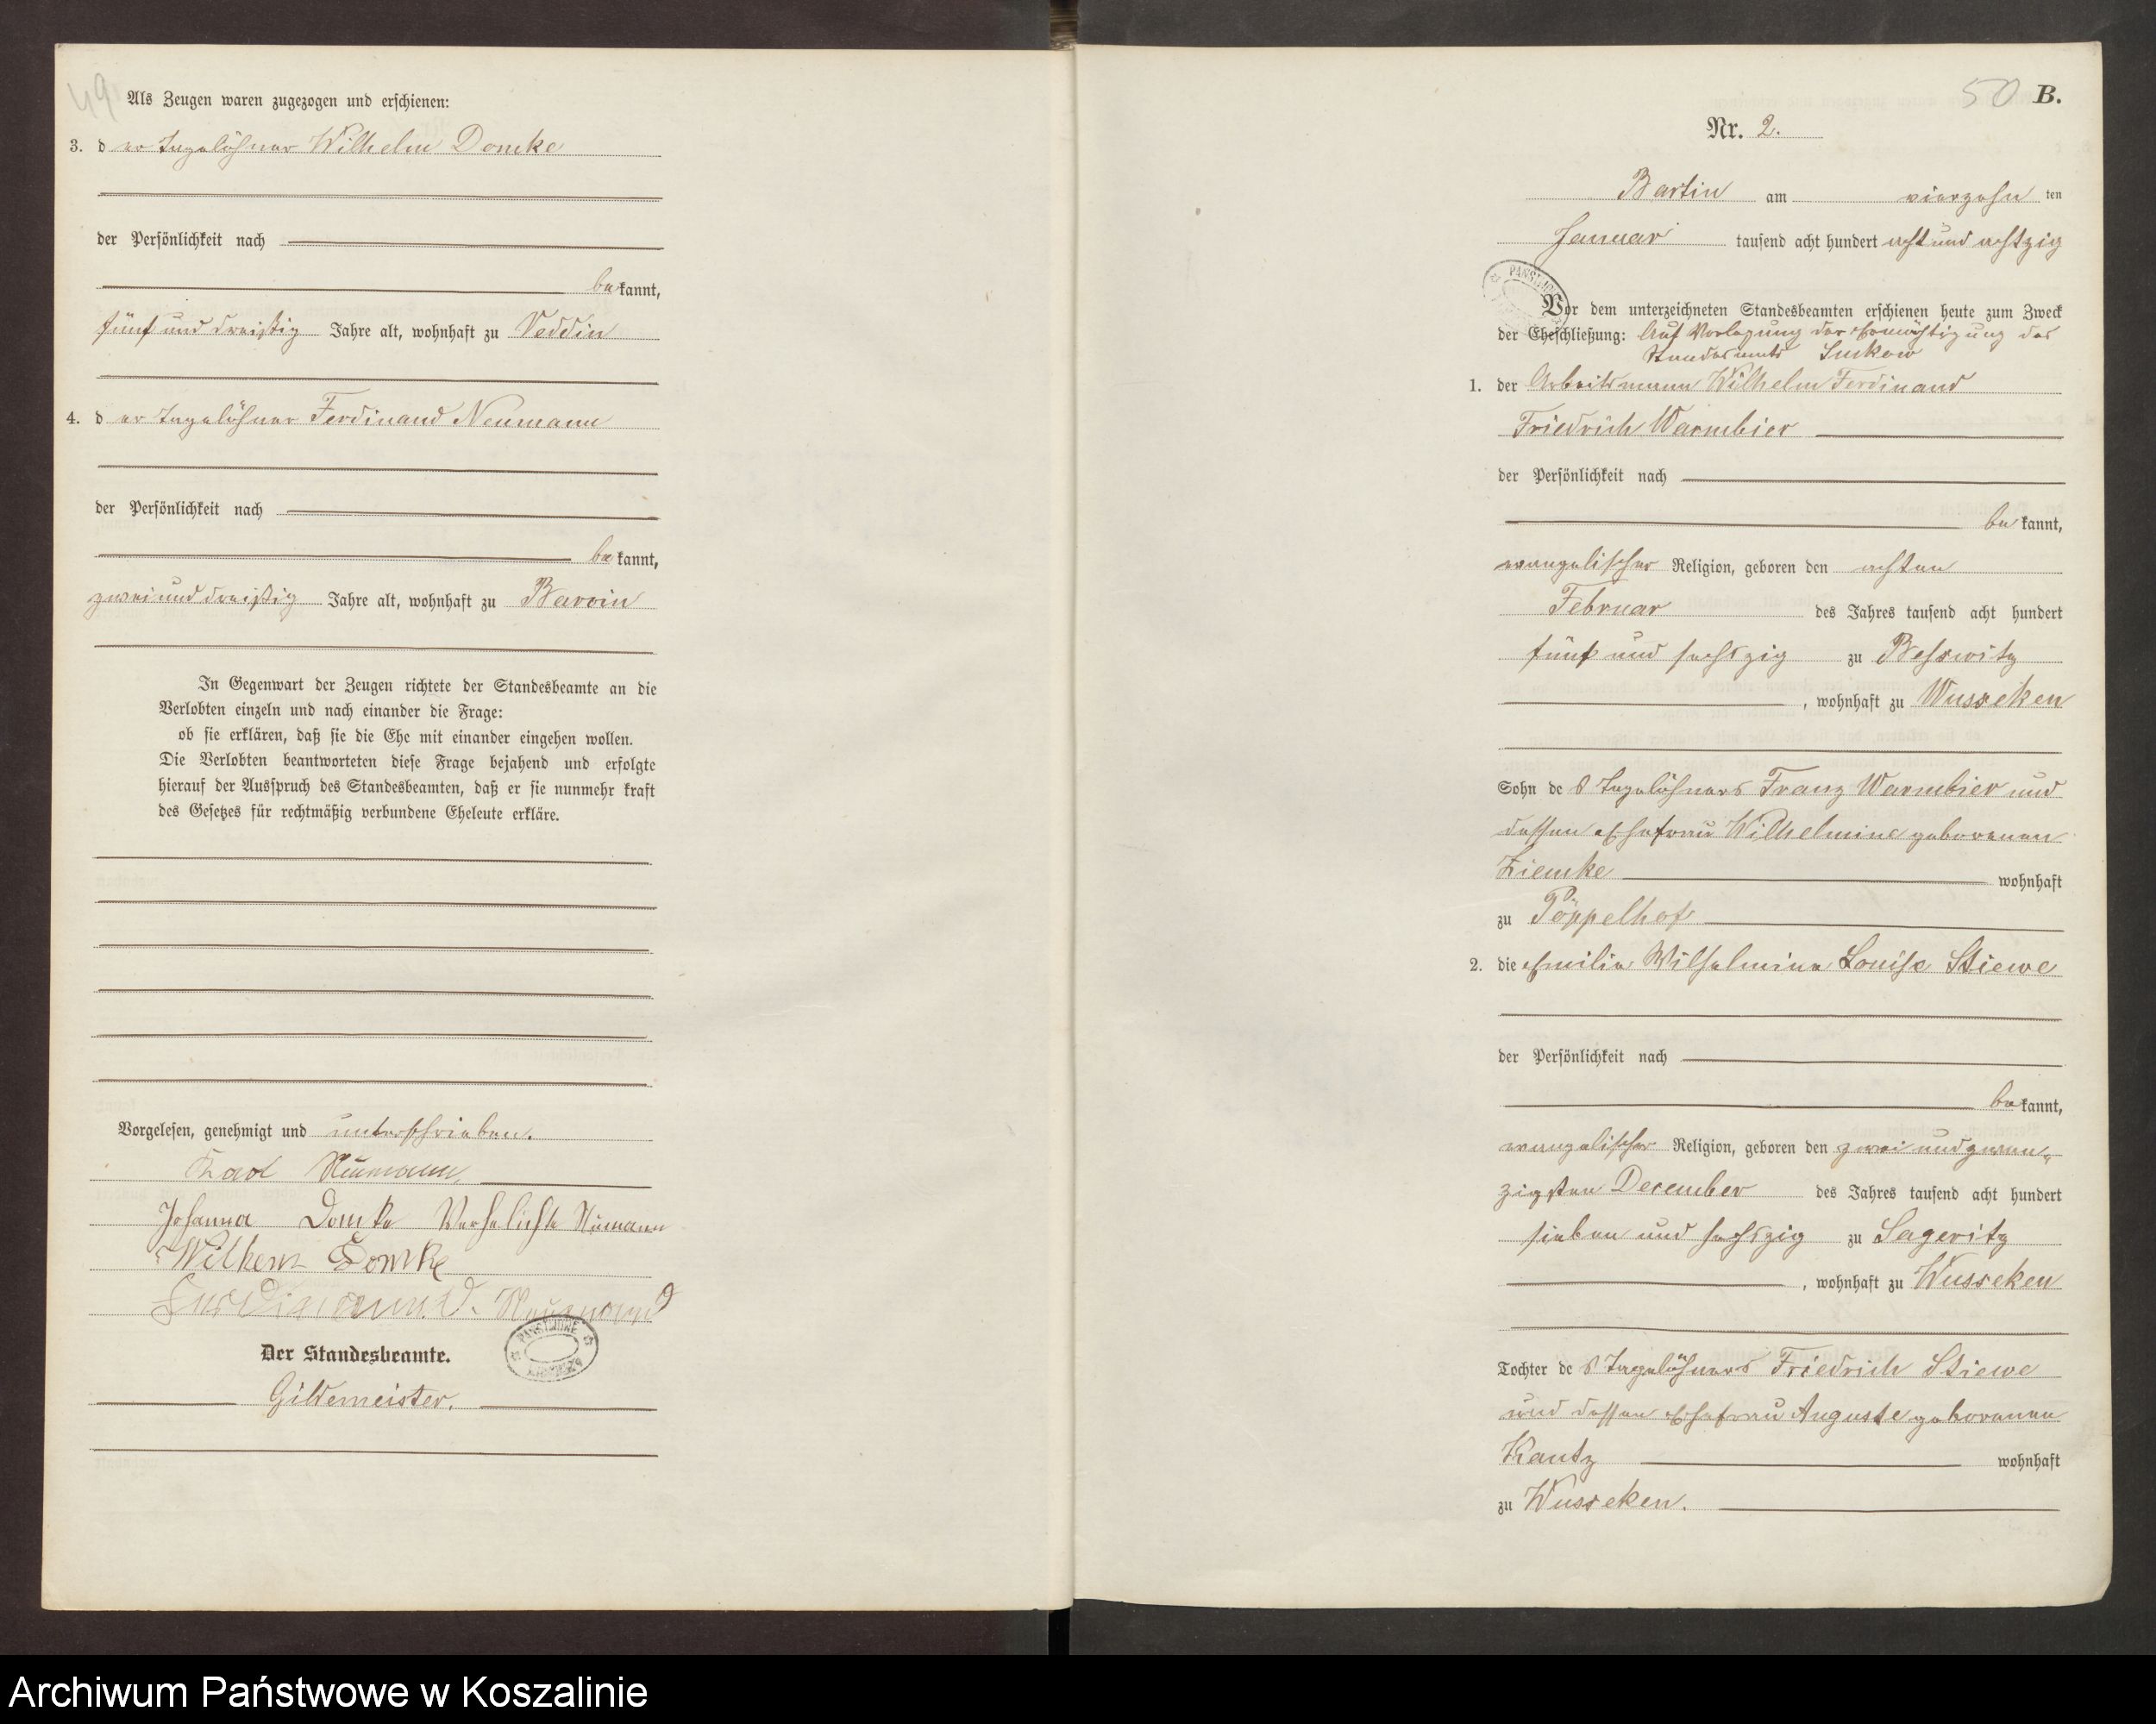 49
Als Zeugen waren zugezogen und erschienen:
3. der Tagelöhner Wilhelm Domke
der Persönlichkeit nach
bekannt,
fünf und dreißig Jahre alt, wohnhaft zu Veddin
4. der Tagelöhner Ferdinand Neumann
der Persönlichkeit nach
bekannt,
zwei und dreißig Jahre alt, wohnhaft zu Barvin
In Gegenwart der Zeugen richtete der Standesbeamte an die
Verlobten einzeln und nach einander die Frage:
ob sie erklären, daß sie die Ehe mit einander eingehen wollen.
Die Verlobten beantworteten diese Frage bejahend und erfolgte
hierauf der Ausspruch des Standesbeamten, daß er sie nunmehr kraft
des Gesetzes für rechtmäßig verbundene Eheleute erkläre.
Vorgelesen, genehmigt und unterschrieben.
Karl Neumann
Johanna Domke Verhelichte Neumann
Wilhem Domke
Ferdinand Neumann
Der Standesbeamte.
Gildemeister.
50 B.
Nr. 2.
Bartin am vierzehn ten
Januar tausend acht hundert acht und achtzig
Vor dem unterzeichneten Standesbeamten erschienen heute zum Zweck
der Eheschließung: Auf Vorlegung der Ermächtigung des
Standesamts Suckow
1. der Arbeitsmann Wilhelm Ferdinand
Friedrich Warmbier
der Persönlichkeit nach
bekannt,
evangelischer Religion, geboren den achten
Februar des Jahres tausend acht hundert
fünf und sechszig zu Besswitz
, wohnhaft zu Wusseken
Sohn des Tagelöhners Franz Warmbier und
dessen Ehefrau Wilhelmine geborenen
Ziemke wohnhaft
zu Pöppelhof
2. die Emilie Wilhelmine Louise Stiewe
der Persönlichkeit nach
bekannt,
evangelischer Religion, geboren den zwei und zwan-
zigsten December des Jahres tausend acht hundert
sieben und sechszig zu Sageritz
, wohnhaft zu Wusseken
Tochter des Tagelöhners Friedrich Stiewe
und dessen Ehefrau Auguste geborenen
Kautz wohnhaft
zu Wusseken.
Archiwum Państwowe w Koszalinie